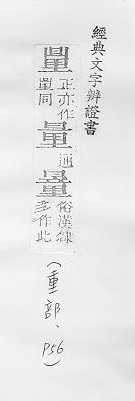 經典文字辨證書
量 正亦作量同 量 通 量 俗漢隸多作此
(重部、P56)